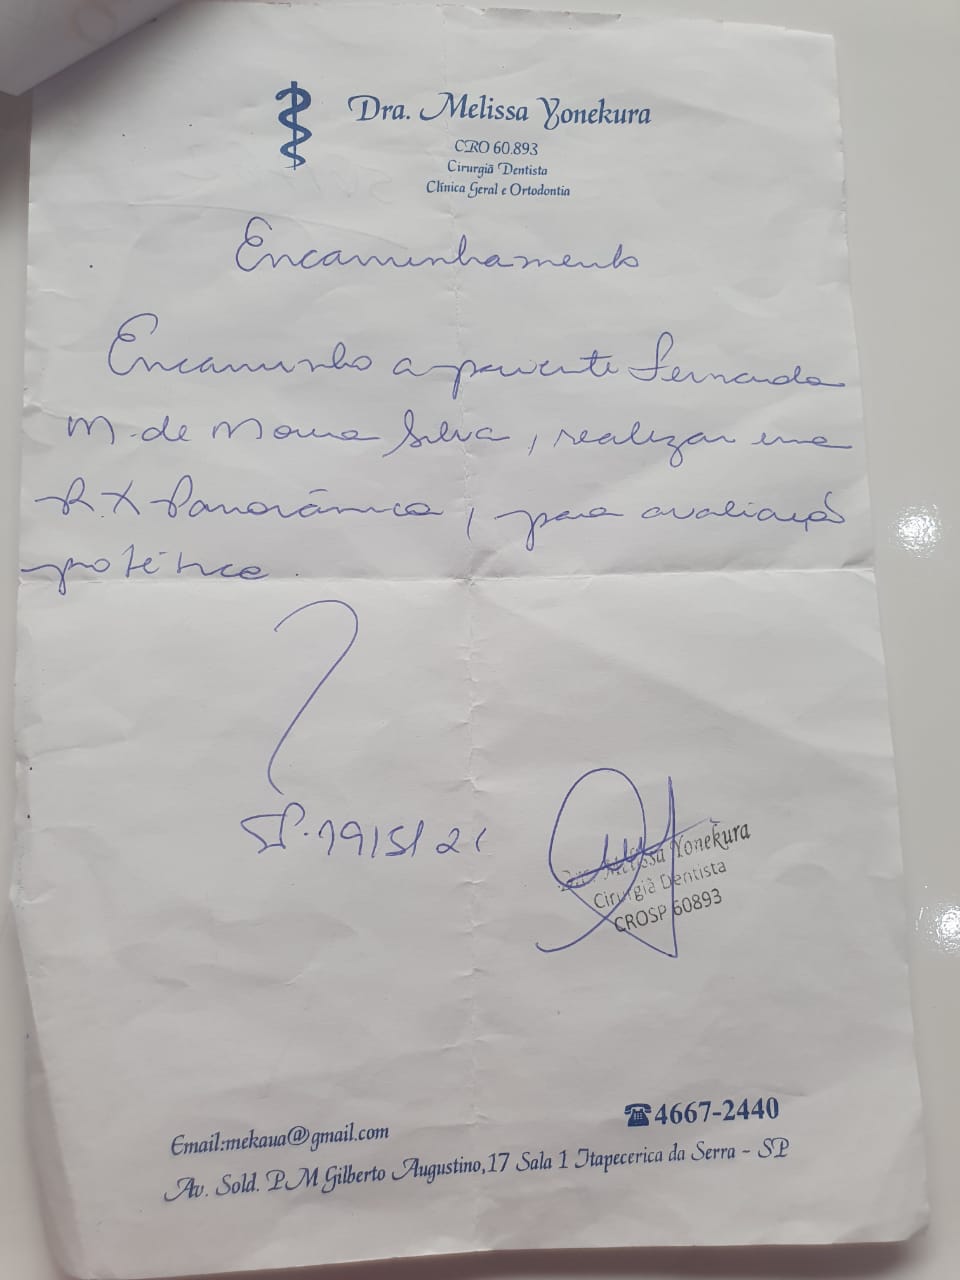 Dra. Melissa Yonekura
CRO 60.893
Cirurgiã Dentista
Clínica Geral e Ortodontia
Encaminhamento
Encaminho a paciente Fernanda
M. de Moura Silva, realizar uma
R.X Panorâmica, para avaliação
protética.
SP. 19/5/21
Dra. Melissa Yonekura
Cirurgiã Dentista
CROSP 60893
☎4667-2440
Email:mekaua@gmail.com
Av. Sold. PM Gilberto Augustino,17 Sala 1 Itapecerica da Serra - SP